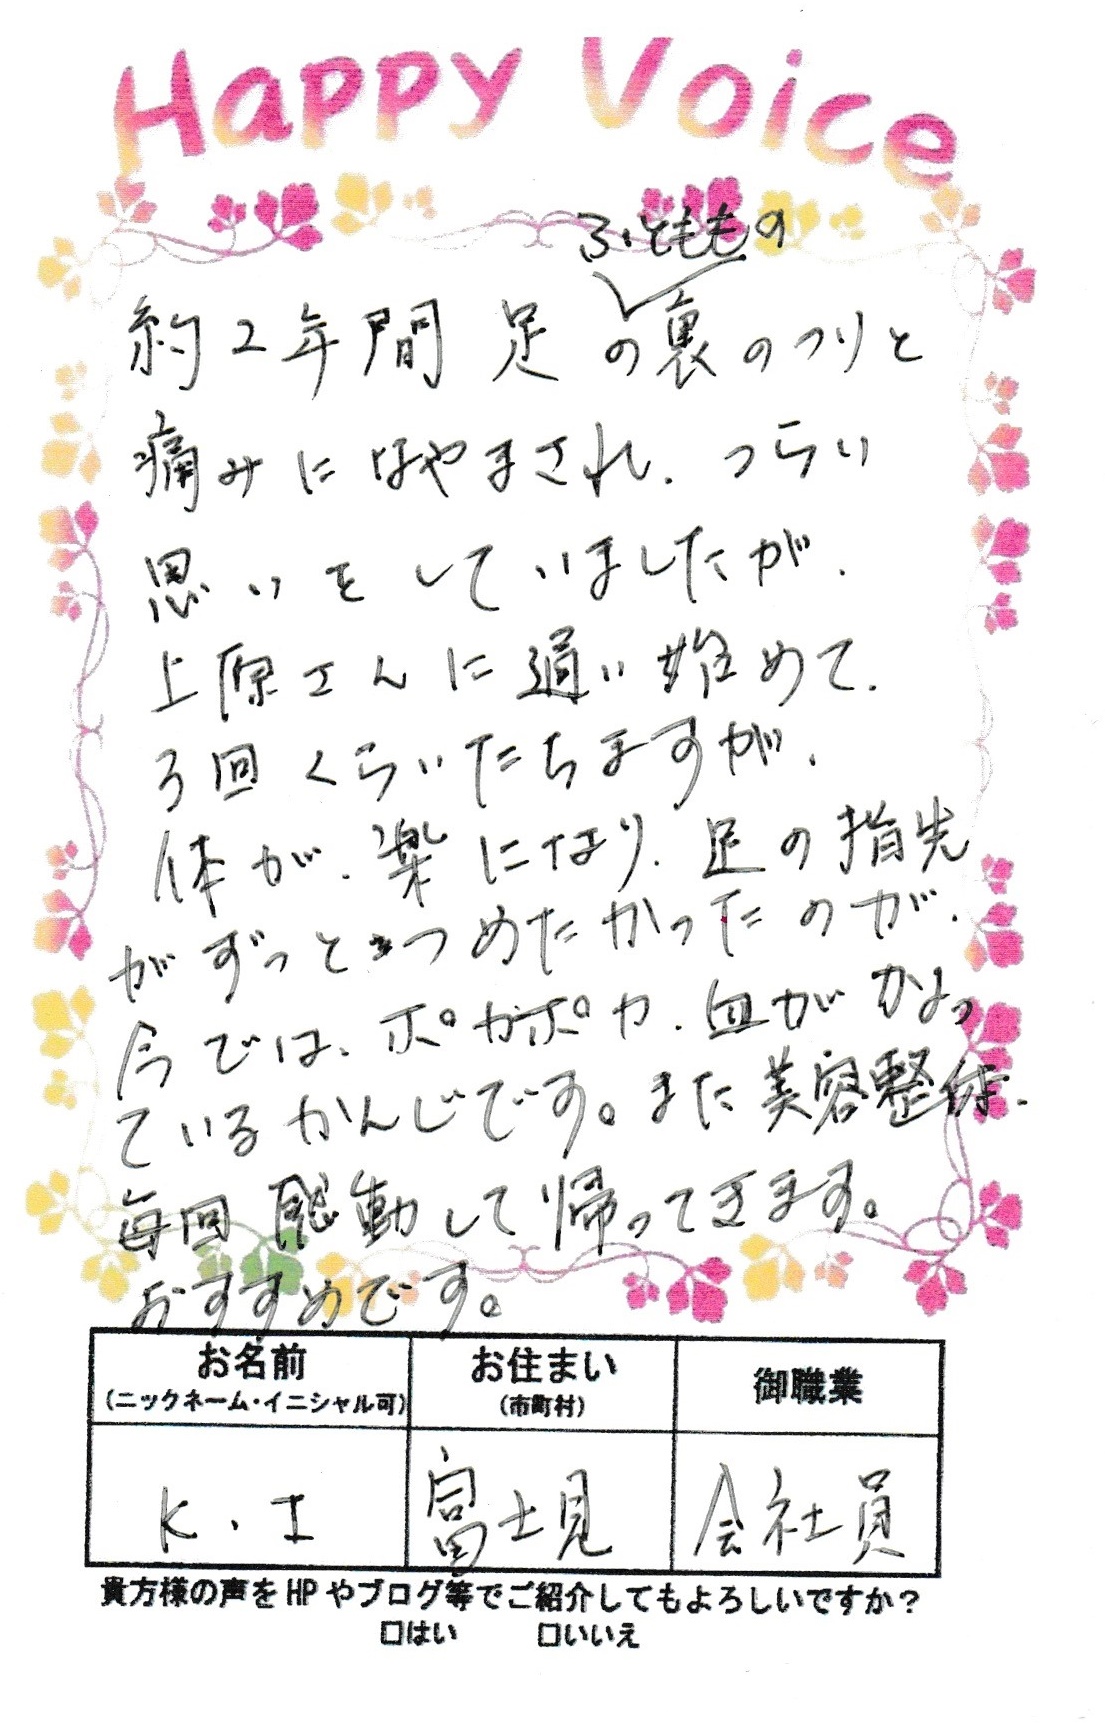 Happy Voice
ふとももの
約2年間 足の裏のつりと
痛みになやまされ、つらい
思いをしていましたが、
上原さんに通い始めて、
3回くらいたちますが、
体が、楽になり、足の指先
がずっとつめたかったのが、
今では、ポカポカ、血がかよっ
ているかんじです。また美容整体、
毎回感動して帰ってきます。
おすすめです。
お名前 お住まい 御職業
(ニックネーム・イニシャル可) (市町村)
K.I 富士見 会社員
貴方様の声をHPやブログ等でご紹介してもよろしいですか?
□はい □いいえ